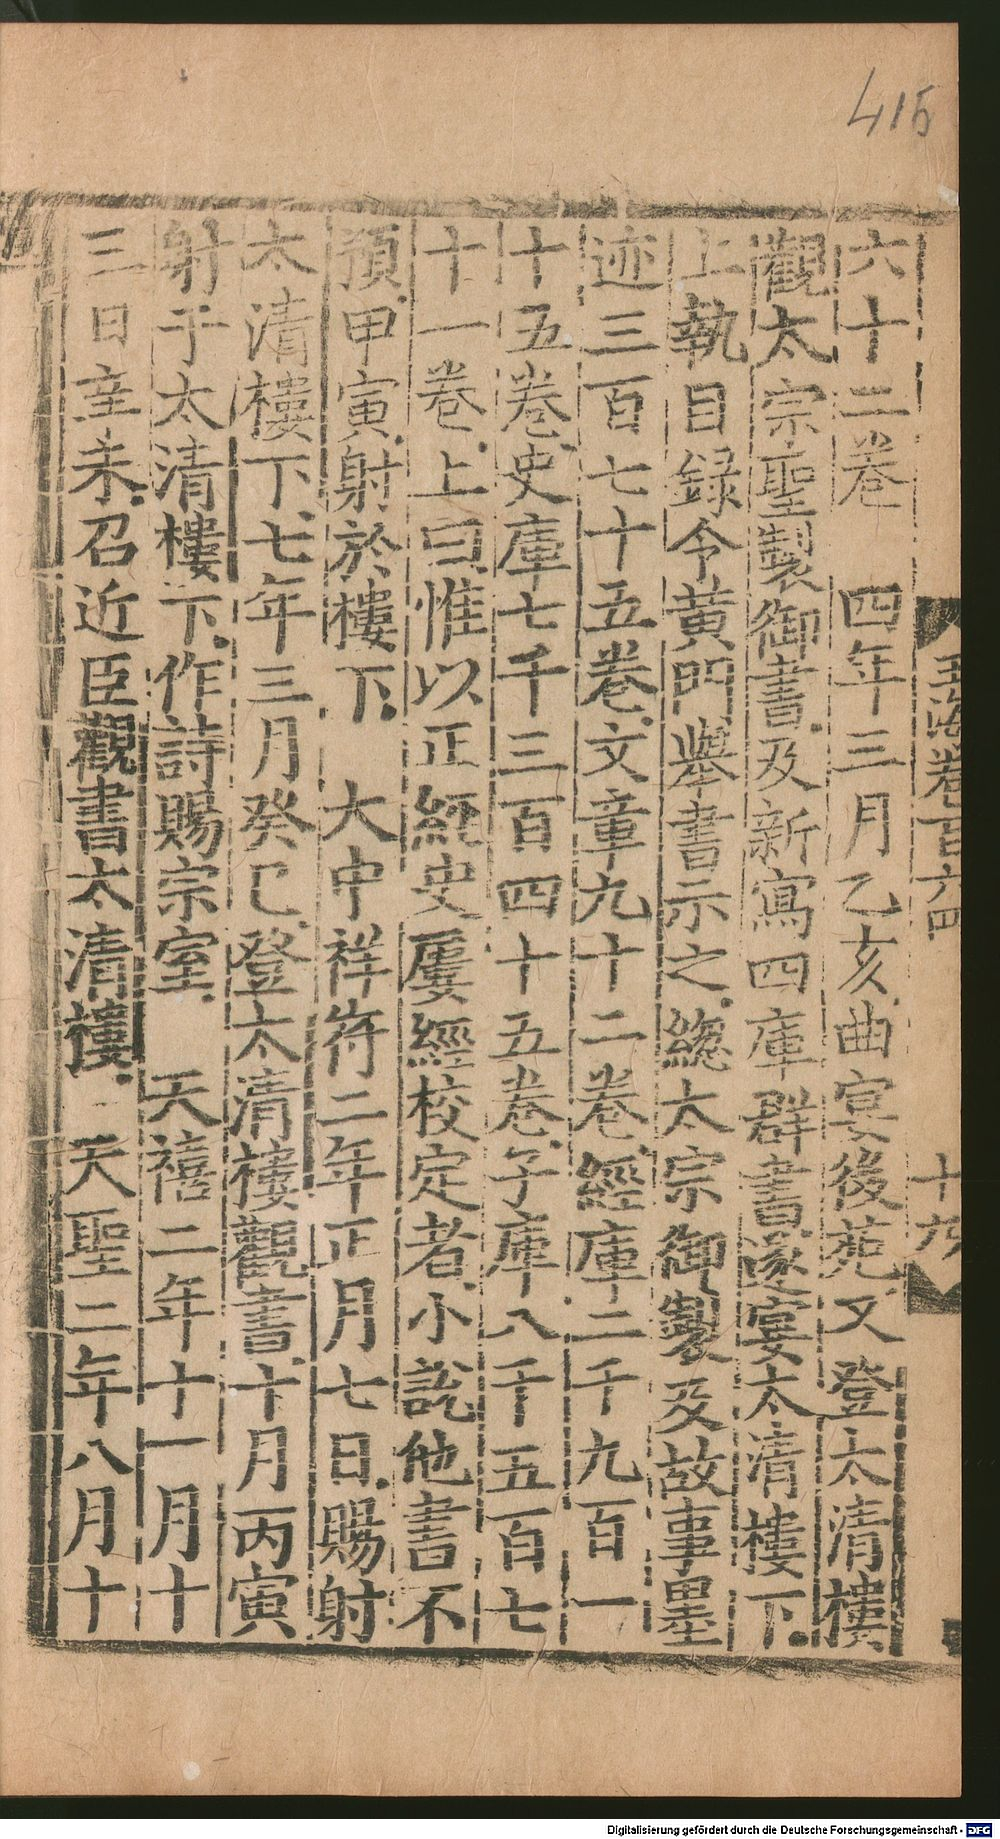 415
玉海卷百六四
十六
六十二卷　四年三月乙亥曲宴後苑又登太清樓
觀太宗聖製御書及新寫四庫群書遂宴太清樓下
上執目録令黄門舉書示之總太宗御製及故事墨
迹三百七十五卷文章九十二卷經庫二千九百一
十五卷史庫七千三百四十五卷子庫八千五百七
十一卷上曰惟以正經史屢經校定者小説他書不
預甲寅射於樓下　大中祥符二年正月七日賜射
太清樓下七年三月癸巳登太清樓觀書十月丙寅
射于太清樓下作詩賜宗室　天禧二年十一月十
三日辛未召近臣觀書太清樓　天聖二年八月十
Digitalisierung gefördert durch die Deutsche Forschungsgemeinschaft - DFG